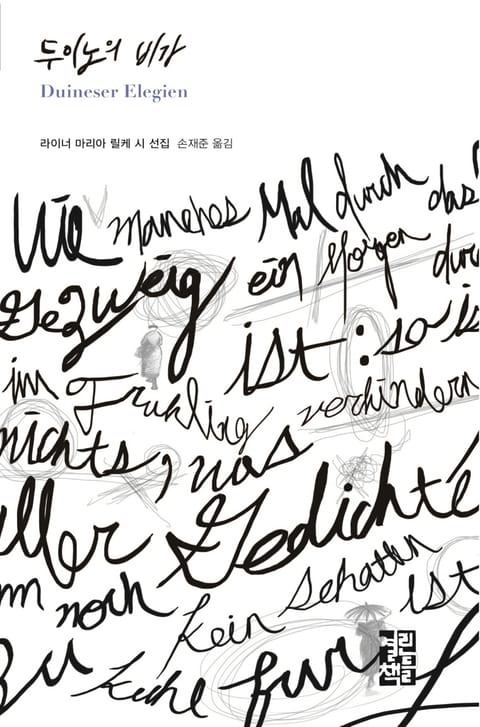 두이노의 비가
Duineser Elegien
라이너 마리아 릴케 시 선집 손재준 옮김
Wie manches Mal durch das
Gezweig ein Morgen durc
ist: so is
im Fruhling verhindern
nichts, was
ller Gedichte
nn noch kein Schatten ist
zu kuhl fur
열린책들